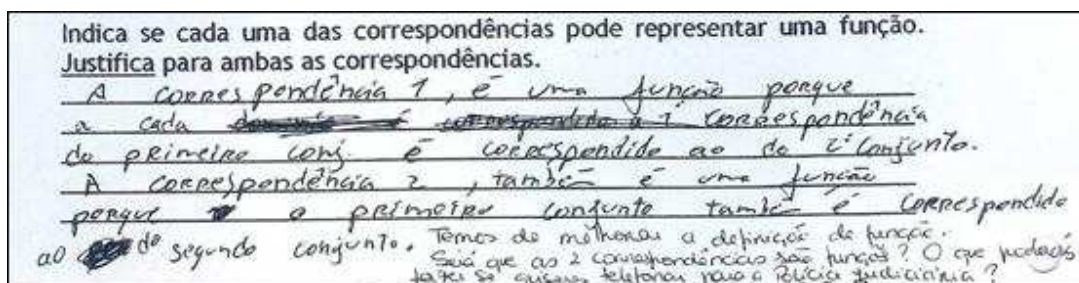 Indica se cada uma das correspondências pode representar uma função.
Justifica para ambas as correspondências.
A correspondência 1, é uma função porque
a cada correspondência
do primeiro conj. é correspondido ao do 2º conjunto.
A correspondência 2, também é uma função
porque o primeiro conjunto também é correspondido
ao do segundo conjunto. Temos de melhorar a definição de função.
Será que as 2 correspondências são funções? O que poderás
fazer se quiseres telefonar para a Polícia Judiciária?